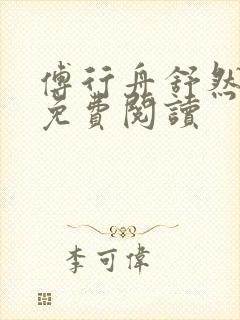 傅行舟舒然
免費閱讀
李可偉